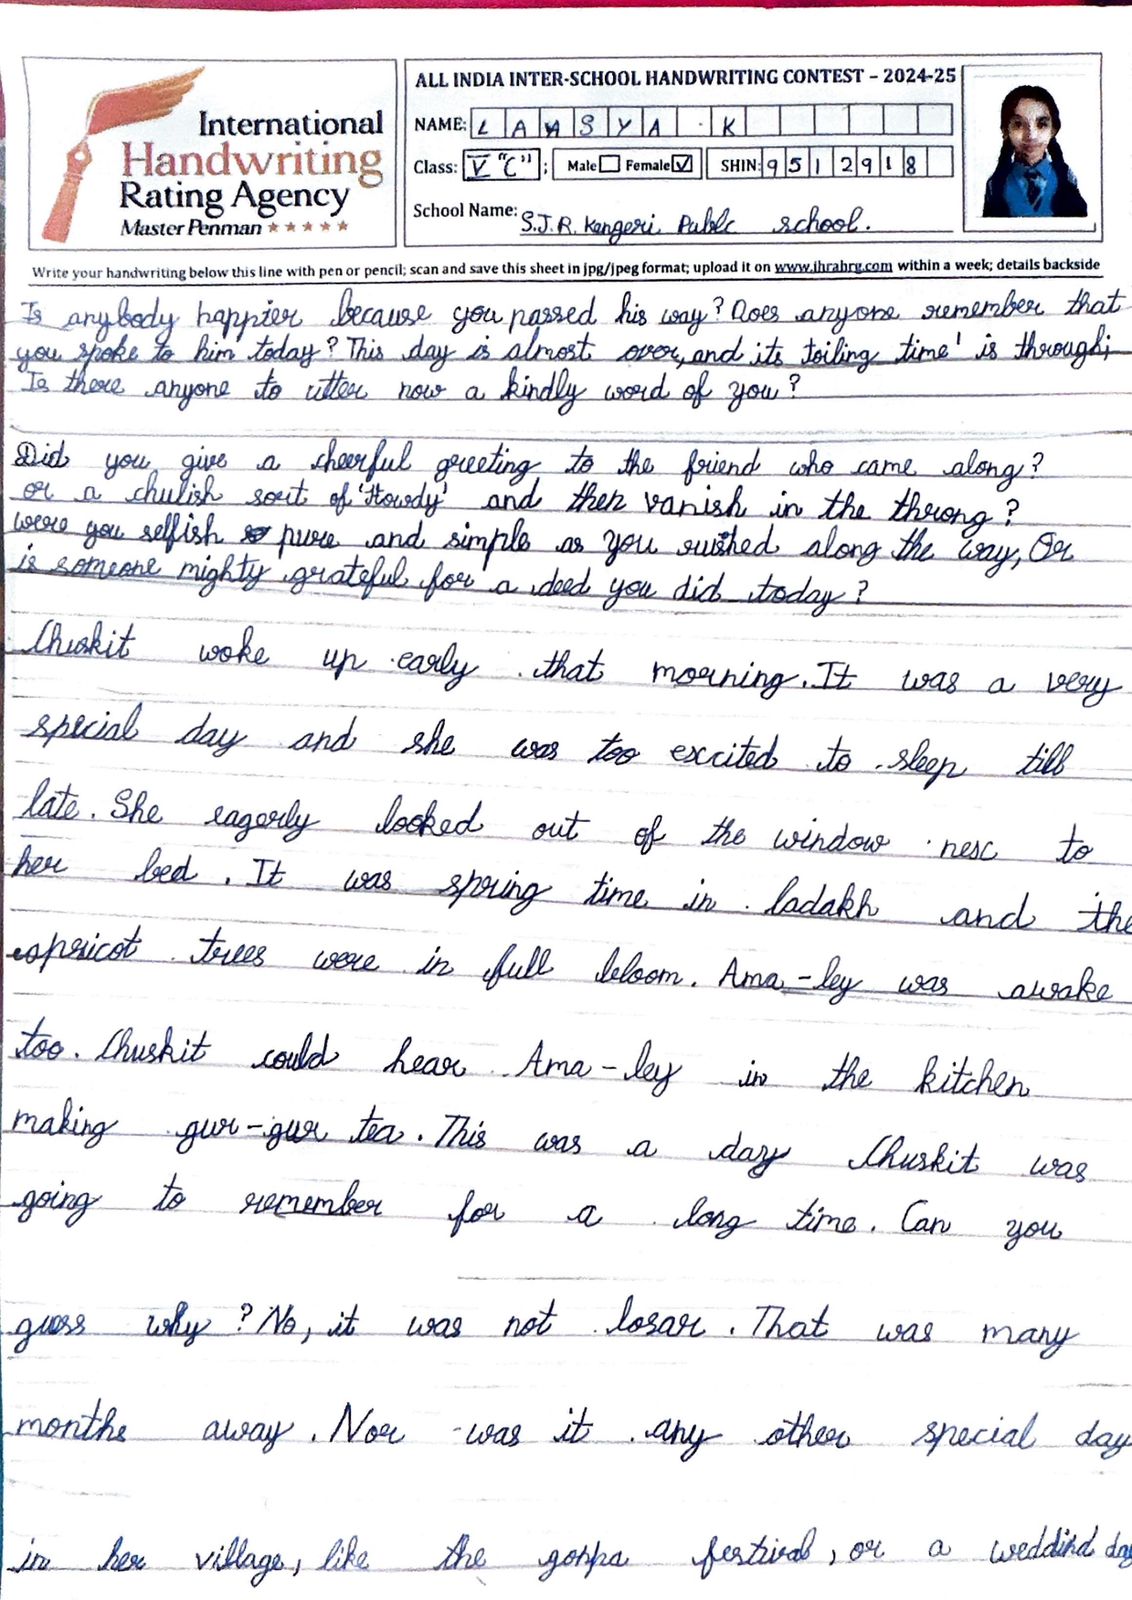 International
Handwriting
Rating Agency
Master Penman ★★★★★
ALL INDIA INTER-SCHOOL HANDWRITING CONTEST – 2024-25
NAME: LAASYA . K
Class: V "C" : Male Female ☑ SHIN: 9512918
School Name: S.J.R. Kengeri Publc school.
Write your handwriting below this line with pen or pencil; scan and save this sheet in jpg/jpeg format; upload it on www.ihrahrg.com within a week; details backside
Is anybody happier because you passed his way? Does anyone remember that
you spoke to him today? This day is almost over, and its toiling time' is through;
Is there anyone to utter now a kindly word of you?
Did you give a cheerful greeting to the friend who came along?
or a chulish sort of 'Howdy' and then vanish in the throng?
were you selfish pure and simple as you rushed along the way, Or
is someone mighty grateful for a deed you did today?
Chuskit woke up early that morning. It was a very
special day and she was too excited to sleep till
late. She eagerly looked out of the window nesc to
her bed. It was spring time in ladakh and the
apricot trees were in full bloom. Ama-ley was awake
too. Chuskit could hear Ama-ley in the kitchen
making gur-gur tea. This was a day Chuskit was
going to remember for a long time. Can you
guess why? No, it was not losar. That was many
months away. Nor was it any other special day
in her village, like the gonpa festival, or a weddind day